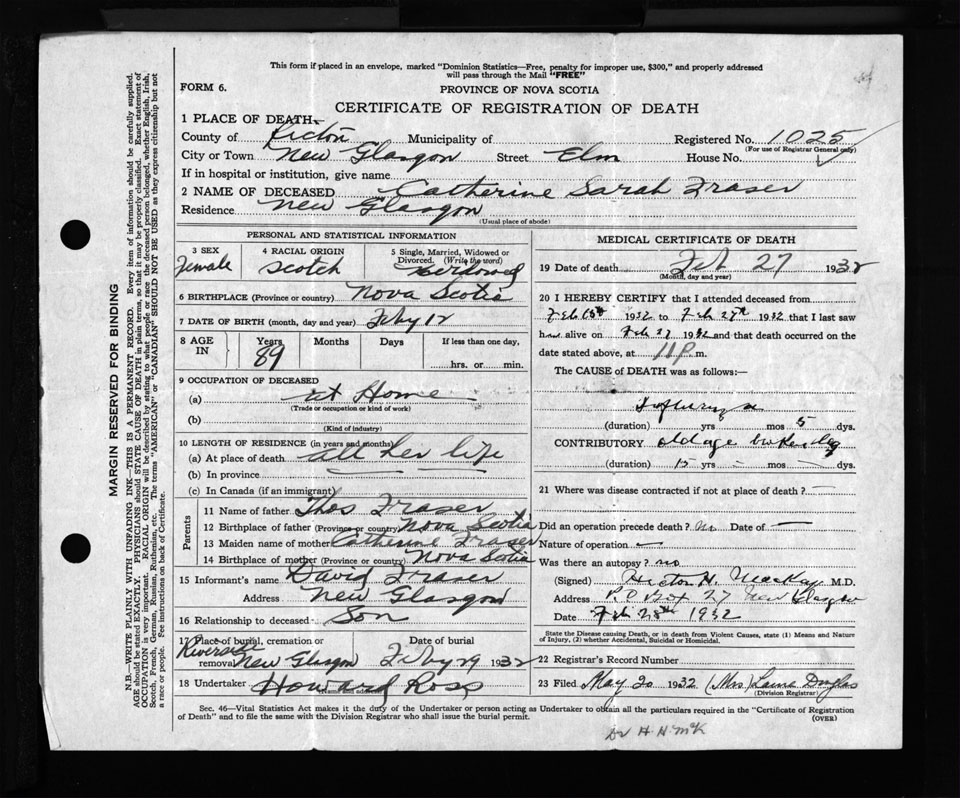 This form if placed in an envelope, marked "Dominion Statistics—Free, penalty for improper use, $300," and properly addressed
will pass through the Mail "FREE"
FORM 6.
PROVINCE OF NOVA SCOTIA
CERTIFICATE OF REGISTRATION OF DEATH
1 PLACE OF DEATH—
County of Pictou Municipality of Registered No. 1025
(For use of Registrar General only)
City or Town New Glasgow Street Elm House No.
If in hospital or institution, give name
2 NAME OF DECEASED Catherine Sarah Fraser
Residence New Glasgow
(Usual place of abode)
PERSONAL AND STATISTICAL INFORMATION
3 SEX
Female
4 RACIAL ORIGIN
Scotch
5 Single, Married, Widowed or
Divorced. (Write the word)
Widowed
6 BIRTHPLACE (Province or country) Nova Scotia
7 DATE OF BIRTH (month, day and year) Feby 12
8 AGE
IN
Years
89
Months
Days
If less than one day,
hrs. or min.
9 OCCUPATION OF DECEASED
(a) at Home
(Trade or occupation or kind of work)
(b)
(Kind of industry)
10 LENGTH OF RESIDENCE (in years and months)
(a) At place of death all her life
(b) In province
(c) In Canada (if an immigrant)
Parents
11 Name of father Thos Fraser
12 Birthplace of father (Province or country) Nova Scotia
13 Maiden name of mother Catherine Fraser
14 Birthplace of mother (Province or country) Nova Scotia
15 Informant's name David Fraser
Address New Glasgow
16 Relationship to deceased Son
17 Place of burial, cremation or
Riverside
removal New Glasgow
Date of burial
Feby 29 1932
18 Undertaker Howard Ross
(Name and address)
MEDICAL CERTIFICATE OF DEATH
19 Date of death Feb 27 1932
(Month, day and year)
20 I HEREBY CERTIFY that I attended deceased from
Feb 1932 to Feb 27th 1932 that I last saw
her alive on Feb 27 1932 and that death occurred on the
date stated above, at 11 P m.
The CAUSE of DEATH was as follows:—
Influenza
(duration) yrs mos 5 dys.
CONTRIBUTORY old age broken leg
(duration) 15 yrs – mos – dys.
21 Where was disease contracted if not at place of death? —
Did an operation precede death? No Date of —
Nature of operation —
Was there an autopsy? no
(Signed) Hector H. MacKay M.D.
Address P.O Box 27 New Glasgow
Date Feb 28th 1932
State the Disease causing Death, or in death from Violent Causes, state (1) Means and Nature
of Injury, (2) whether Accidental, Suicidal or Homicidal.
22 Registrar's Record Number
23 Filed May 20 1932 (Mrs) Laura Douglas
(Division Registrar)
Sec. 46—Vital Statistics Act makes it the duty of the Undertaker or person acting as Undertaker to obtain all the particulars required in the "Certificate of Registration
of Death" and to file the same with the Division Registrar who shall issue the burial permit.
(OVER)
Dr H. H. McK
MARGIN RESERVED FOR BINDING
N.B.—WRITE PLAINLY WITH UNFADING INK—THIS IS A PERMANENT RECORD. Every item of information should be carefully supplied.
AGE should be stated EXACTLY. PHYSICIANS should STATE CAUSE OF DEATH in plain terms, so that it may be properly classified. Exact statement of
OCCUPATION is very important. RACIAL ORIGIN will be described by stating to what people or race the deceased person belonged, whether English, Irish,
Scotch, French, German, Russian, Ruthenian, etc. The terms "AMERICAN" or "CANADIAN" SHOULD NOT BE USED as they express citizenship but not
a race or people. See instructions on back of Certificate.